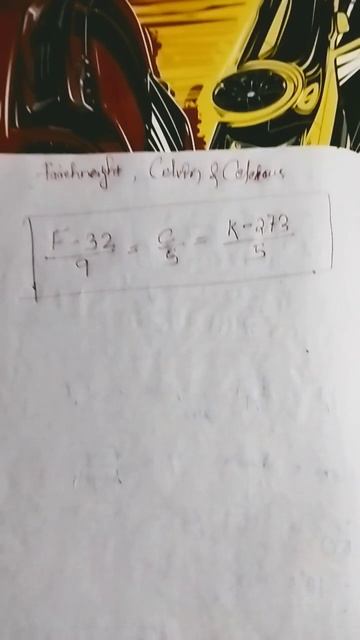 Fairehneight, Celvin & Celcious
F-32/9 = C/5 = K-273/5